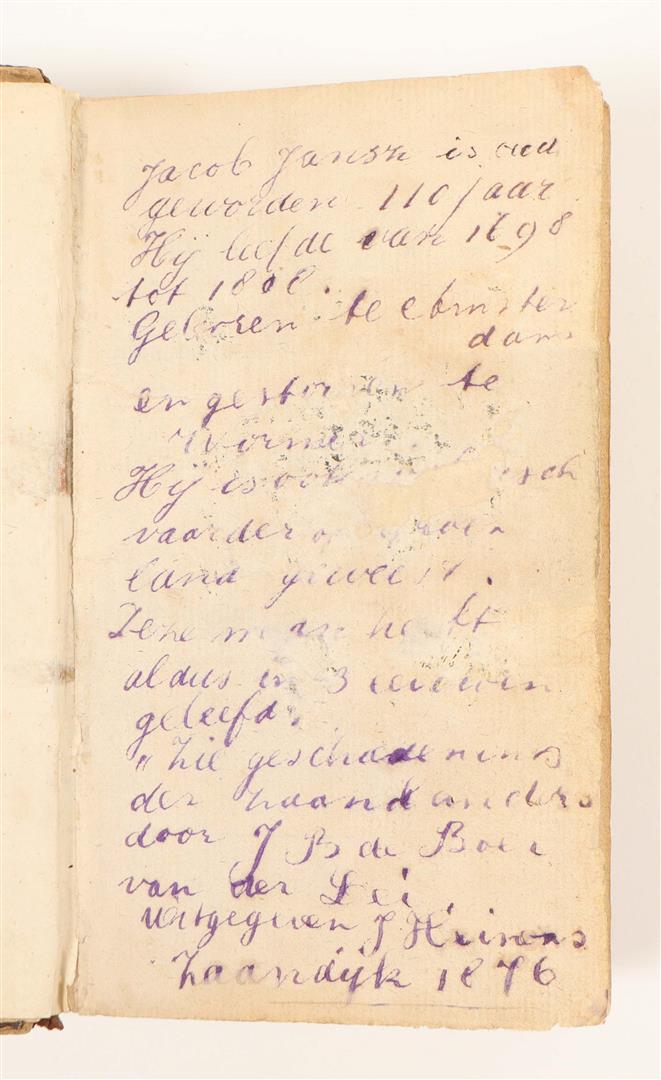 Jacob Jansz is oud
geworden 110 jaar
Hij leefde van 1698
tot 1808.
Geboren te Amster
dam
en gestorven te
Wormer
Hij is ook
vaarder op groen
land geweest.
Deze man heeft
aldus in 3 eeuwen
geleefd.
„Zie geschiedenins
der Zaanlanders
door J B de Boer
van der Lei,
uitgegeven J Heinons
Zaandijk 1876